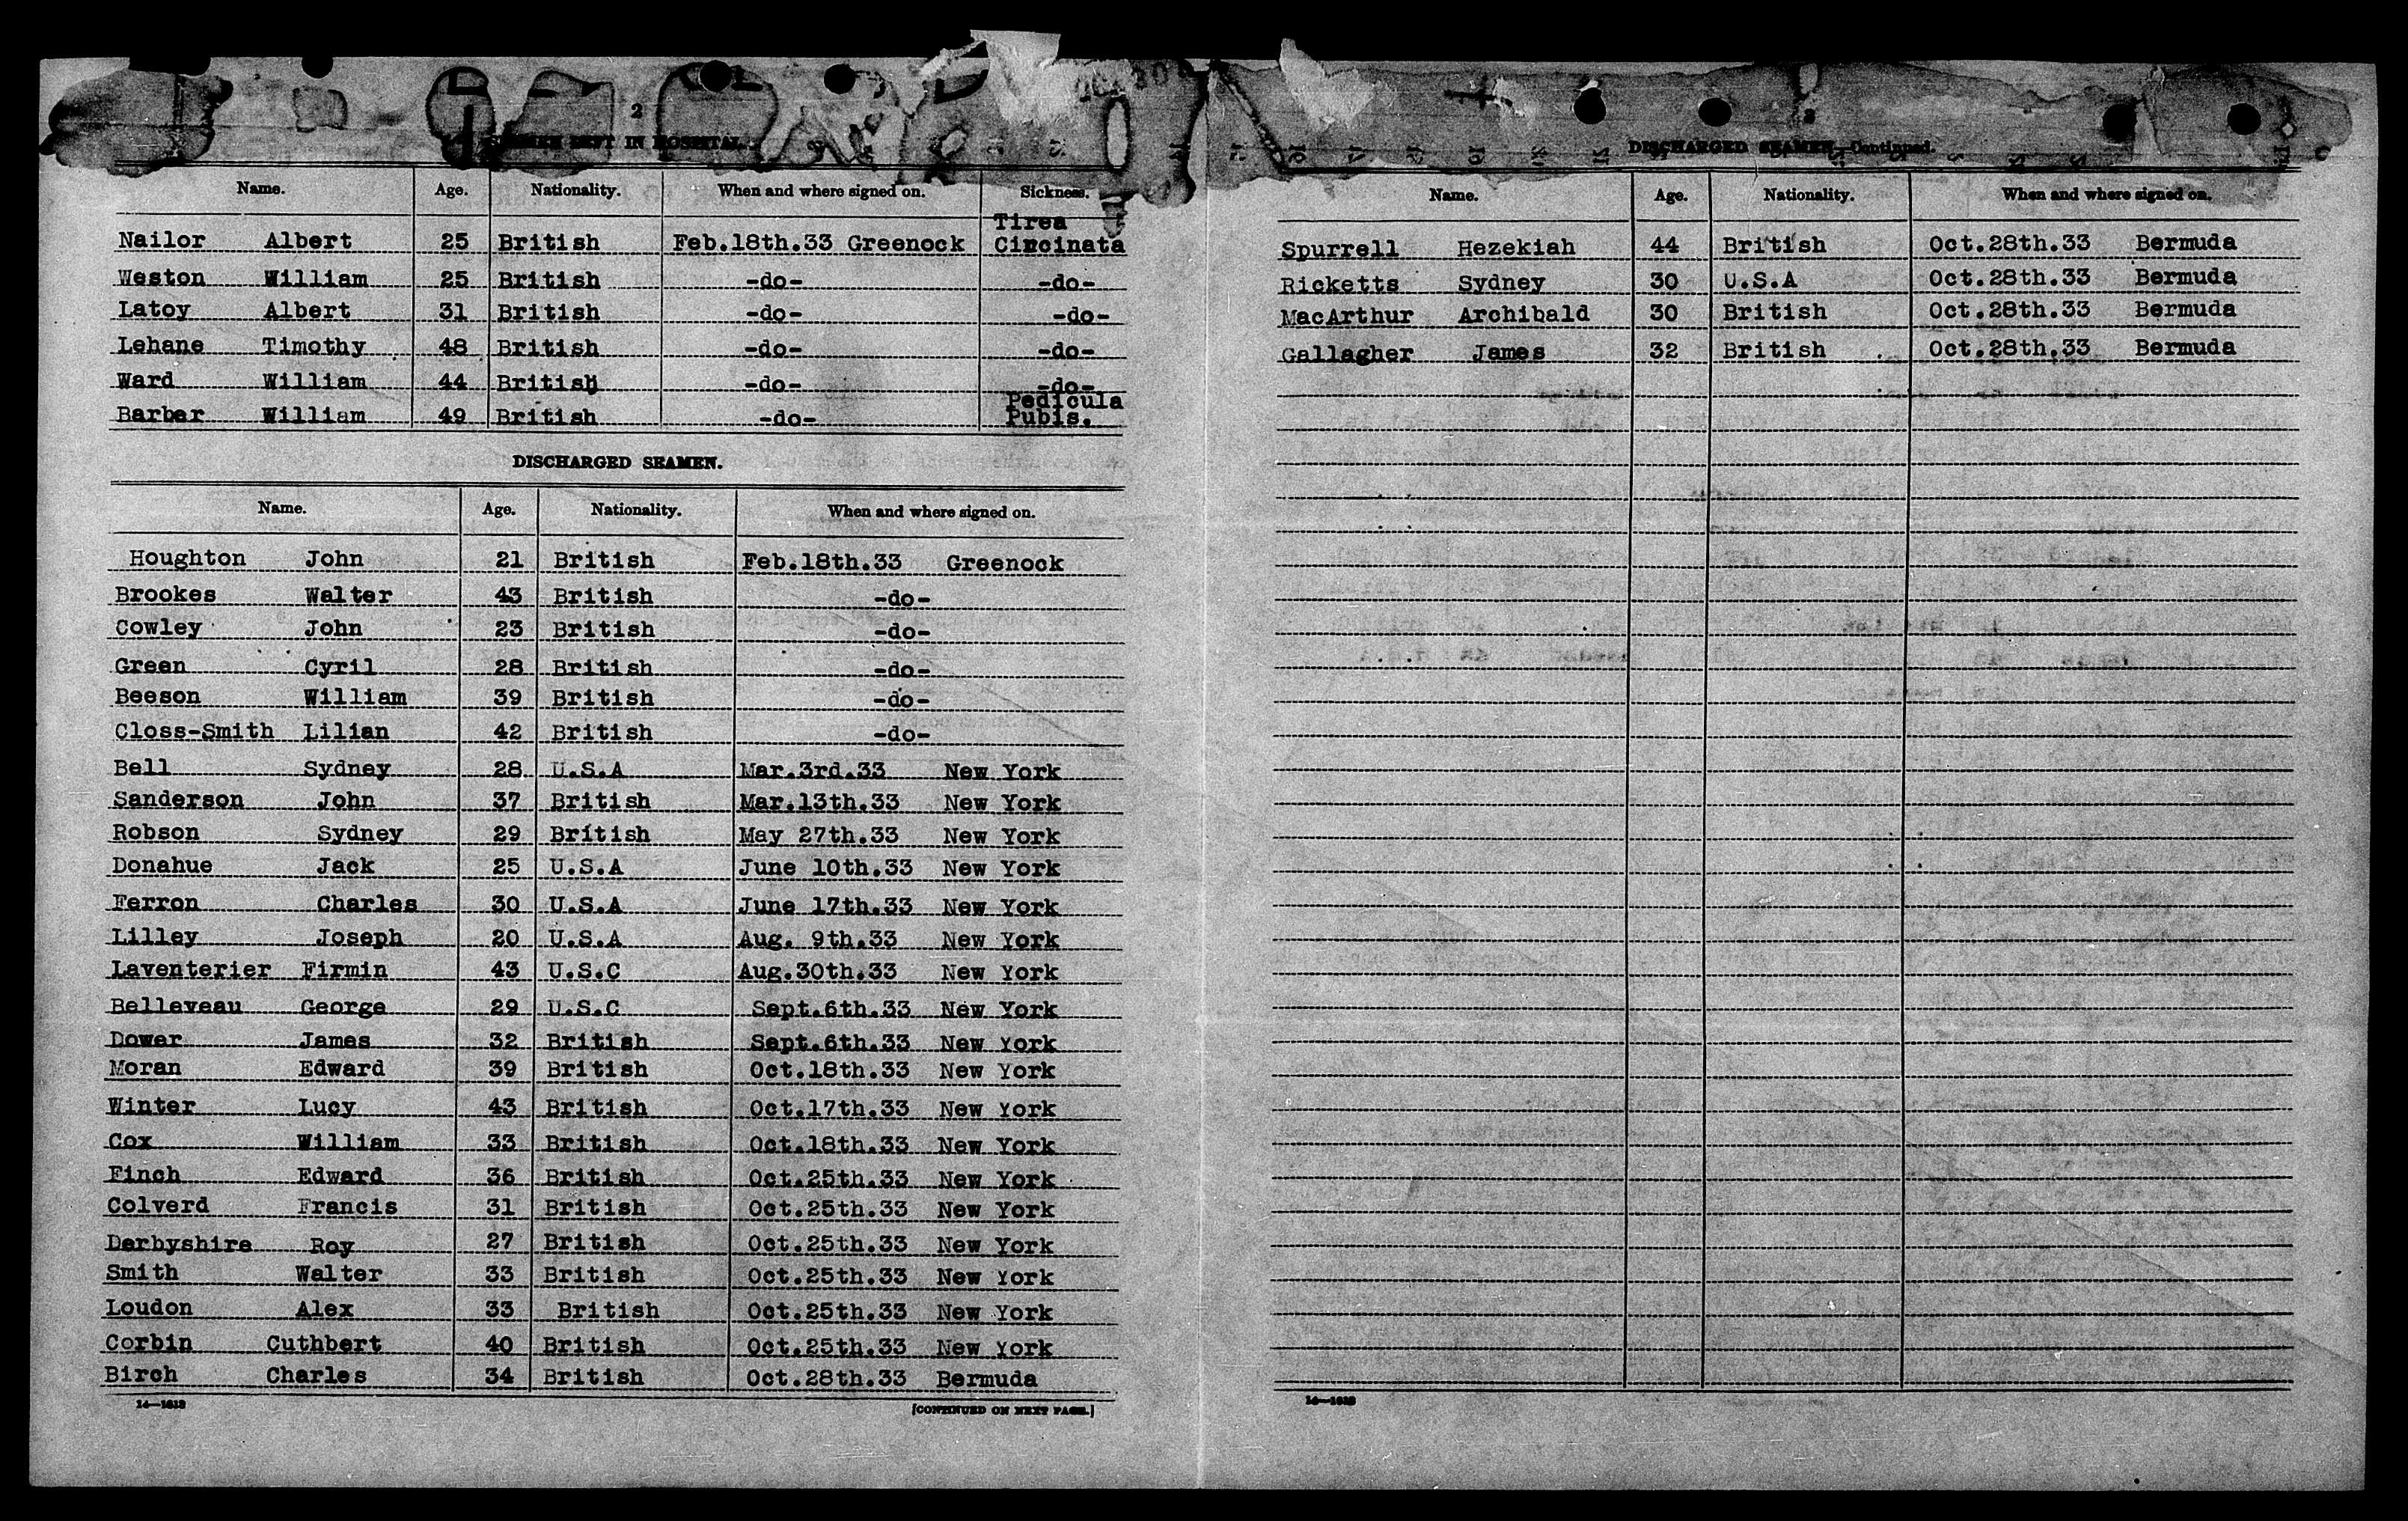 2
SEAMEN LEFT IN HOSPITAL.
Name. Age. Nationality. When and where signed on. Sickness.
Nailor Albert 25 British Feb.18th.33 Greenock Tirea Circinata
Weston William 25 British -do- -do-
Latoy Albert 31 British -do- -do-
Lehane Timothy 48 British -do- -do-
Ward William 44 British -do- -do-
Barber William 49 British -do- Pedicula Pubis.
DISCHARGED SEAMEN.
Name. Age. Nationality. When and where signed on.
Houghton John 21 British Feb.18th.33 Greenock
Brookes Walter 43 British -do-
Cowley John 23 British -do-
Green Cyril 28 British -do-
Beeson William 39 British -do-
Closs-Smith Lilian 42 British -do-
Bell Sydney 28 U.S.A Mar.3rd.33 New York
Sanderson John 37 British Mar.13th.33 New York
Robson Sydney 29 British May 27th.33 New York
Donahue Jack 25 U.S.A June 10th.33 New York
Ferron Charles 30 U.S.A June 17th.33 New York
Lilley Joseph 20 U.S.A Aug. 9th.33 New York
Laventerier Firmin 43 U.S.C Aug.30th.33 New York
Belleveau George 29 U.S.C Sept.6th.33 New York
Dower James 32 British Sept.6th.33 New York
Moran Edward 39 British Oct.18th.33 New York
Winter Lucy 43 British Oct.17th.33 New York
Cox William 33 British Oct.18th.33 New York
Finch Edward 36 British Oct.25th.33 New York
Colverd Francis 31 British Oct.25th.33 New York
Derbyshire Roy 27 British Oct.25th.33 New York
Smith Walter 33 British Oct.25th.33 New York
Loudon Alex 33 British Oct.25th.33 New York
Corbin Cuthbert 40 British Oct.25th.33 New York
Birch Charles 34 British Oct.28th.33 Bermuda
14—1613
[CONTINUED ON NEXT PAGE.]
3
DISCHARGED SEAMEN—Continued.
Name. Age. Nationality. When and where signed on.
Spurrell Hezekiah 44 British Oct.28th.33 Bermuda
Ricketts Sydney 30 U.S.A Oct.28th.33 Bermuda
MacArthur Archibald 30 British Oct.28th.33 Bermuda
Gallagher James 32 British Oct.28th.33 Bermuda
14—1613